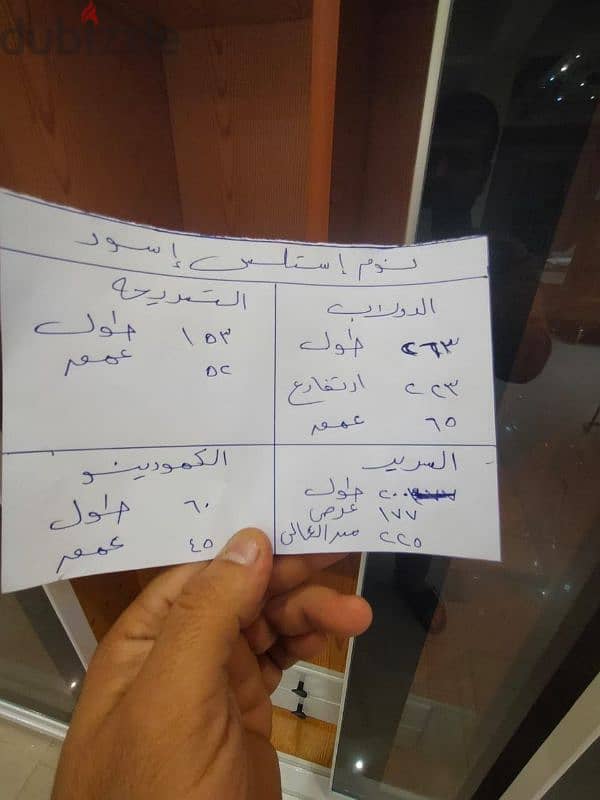 dubizzle
نوم إستلس إسود
الدولاب
٢٦٣ طول
٢٢٣ ارتفاع
٦٥ عمق
التسريحه
١٥٣ طول
٥٢ عمق
السرير
٢٠٠ طول
١٧٧ عرض
٢٢٥
الكمودينو
٦٠ طول
٤٥ عمق